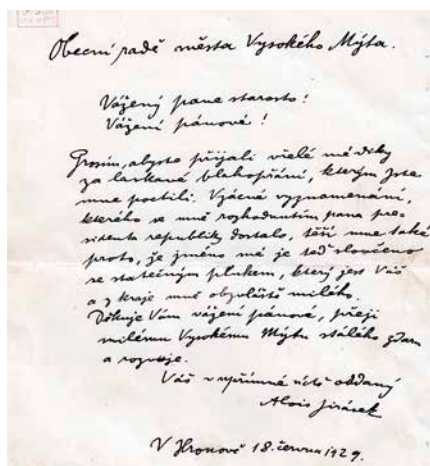 Obecní radě města Vysokého Mýta.
Vážený pane starosto!
Vážení pánové!
Prosím, abyste přijali vřelé mé díky
za laskavé blahopřání, kterým jste
mne poctili. Vzácné vyznamenání,
kterého se mně rozhodnutím pana pre-
sidenta republiky dostalo, těší mne také
proto, že jméno mé je teď sloučeno
se statečným plukem, který jest Váš
a z kraje mně obzvláště milého.
Děkuje Vám vážení pánové, přeji
milému Vysokému Mýtu stálého zdaru
a rozvoje.
Váš v upřímné úctě oddaný
Alois Jirásek
V Hronově 18. června 1929.